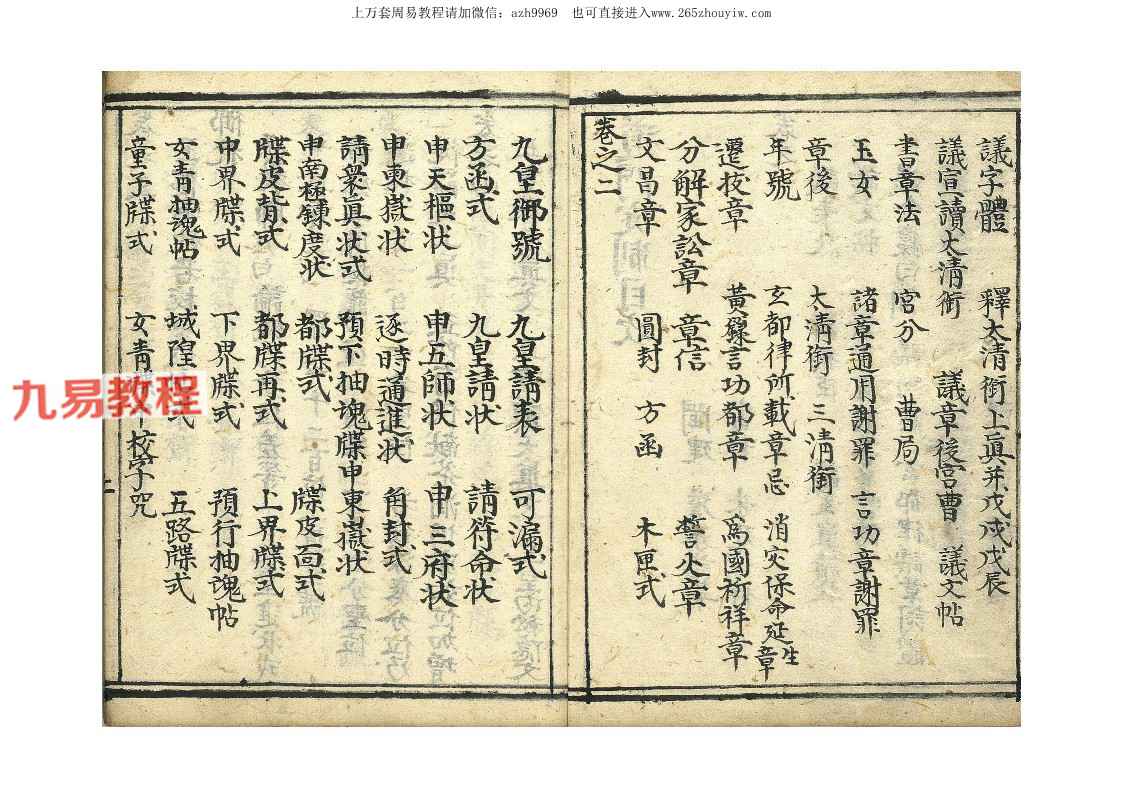 上万套周易教程请加微信：azh9969　也可直接进入www.265zhouyiw.com
議字體　釋太清銜上眞并戊戌戊辰
議宣讀太清銜　議章後宮曹　議文帖
書章法　宮分　曹局
玉女　諸章通用謝罪　言功章謝罪
章後　大清銜　三清銜
年號　玄都律所載章忌　消灾保命延生章
遷拔章　黃籙言功都章　爲國祈祥章
分解家訟章　章信　誓火章
文昌章　圓封　方函　木匣式
卷之二
九皇御號　九皇請表　可漏式
方函式　九皇請状　請符命状
申天樞状　申五師状　申三府状
申東嶽状　逐時通進状　角封式
請衆眞状式　預下抽魂牒申東嶽状
申南極鍊度状　都牒式　牒皮面式
牒皮背式　都牒再式　上界牒式
中界牒式　下界牒式　預行抽魂帖
女青抽魂帖　城隍式　五路牒式
童子牒式　女青校字咒
二
九易教程